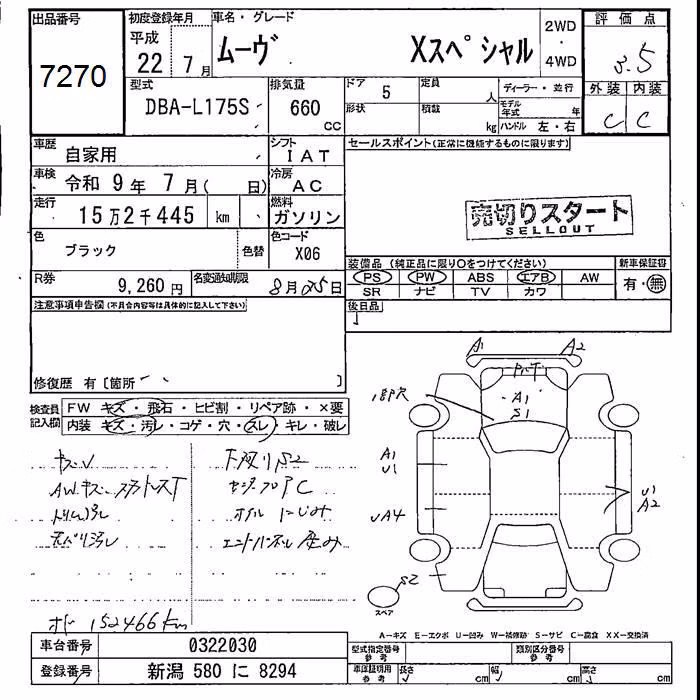 出品番号 初度登録年月 車名・グレード 2WD ・ 4WD 評価点
7270 平成 22 7月 ムーヴ Xスペシャル 3.5
型式 排気量 ドア 5 定員 人 ディーラー・並行 外装 内装
DBA-L175S 660 cc 形状 積数 kg モデル年式 年 ハンドル 左・右 C C
車歴 自家用 シフト IAT セールスポイント(正常に機能するものに限ります)
車検 令和 9年 7月( 日) 冷房 AC
走行 15万2千445 km 燃料 ガソリン
売切りスタート
SELLOUT
色 ブラック 色替 色コード X06
装備品(純正品に限り○をつけてください) 新車保証書
R券 9,260円 名変通知期限 8月25日
PS PW ABS エアB AW 有・無
SR ナビ TV カワ
注意事項申告欄(不具合内容等は具体的に記入して下さい) 後日品
修復歴 有[箇所
検査員記入欄 FW キズ・飛石・ヒビ割・リペア跡・×要
内装 キズ・汚レ・コゲ・穴・スレ・キレ・破レ
A1 A2
A1
S1
A1
U1
UA4
U1
A2
S2
スペア
キズU 下廻りS2
オド 152466km
A−キズ E−エクボ U−凹み W−補修跡 S−サビ C−腐食 XX−交換済
車台番号 0322030 型式指定番号 参考 類別区分番号 参考
登録番号 新潟 580 に 8294 車庫証明用 参考 長さ cm 幅 cm 高さ cm